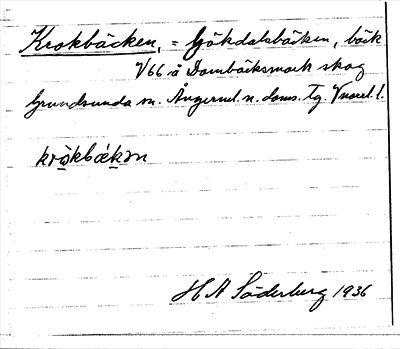 Krokbäcken, = Gökdalsbäcken, bäck
V66 å Dombäcksmark skog
Grundsunda sn. Ångerml. n. doms. Tg. Vnorrl. l.
kròkbǽkən
H A Söderberg 1936